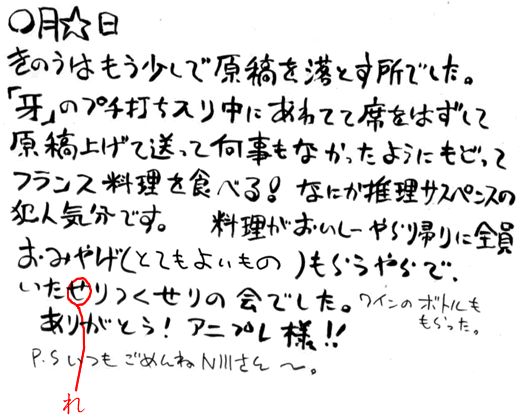 〇月☆日
きのうはもう少しで原稿を落とす所でした。
「牙」のプチ打ち入り中にあわてて席をはずして
原稿上げて送って何事もなかったようにもどって
フランス料理を食べる！なにか推理サスペンスの
犯人気分です。　料理がおいしーやら帰りに全員
おみやげ(とてもよいもの)もらうやらで、
いたせりつくせりの会でした。ワインのボトルも
もらった。
ありがとう！アニプレ様!!
P.Sいつもごめんね Nlllさん〜。
れ